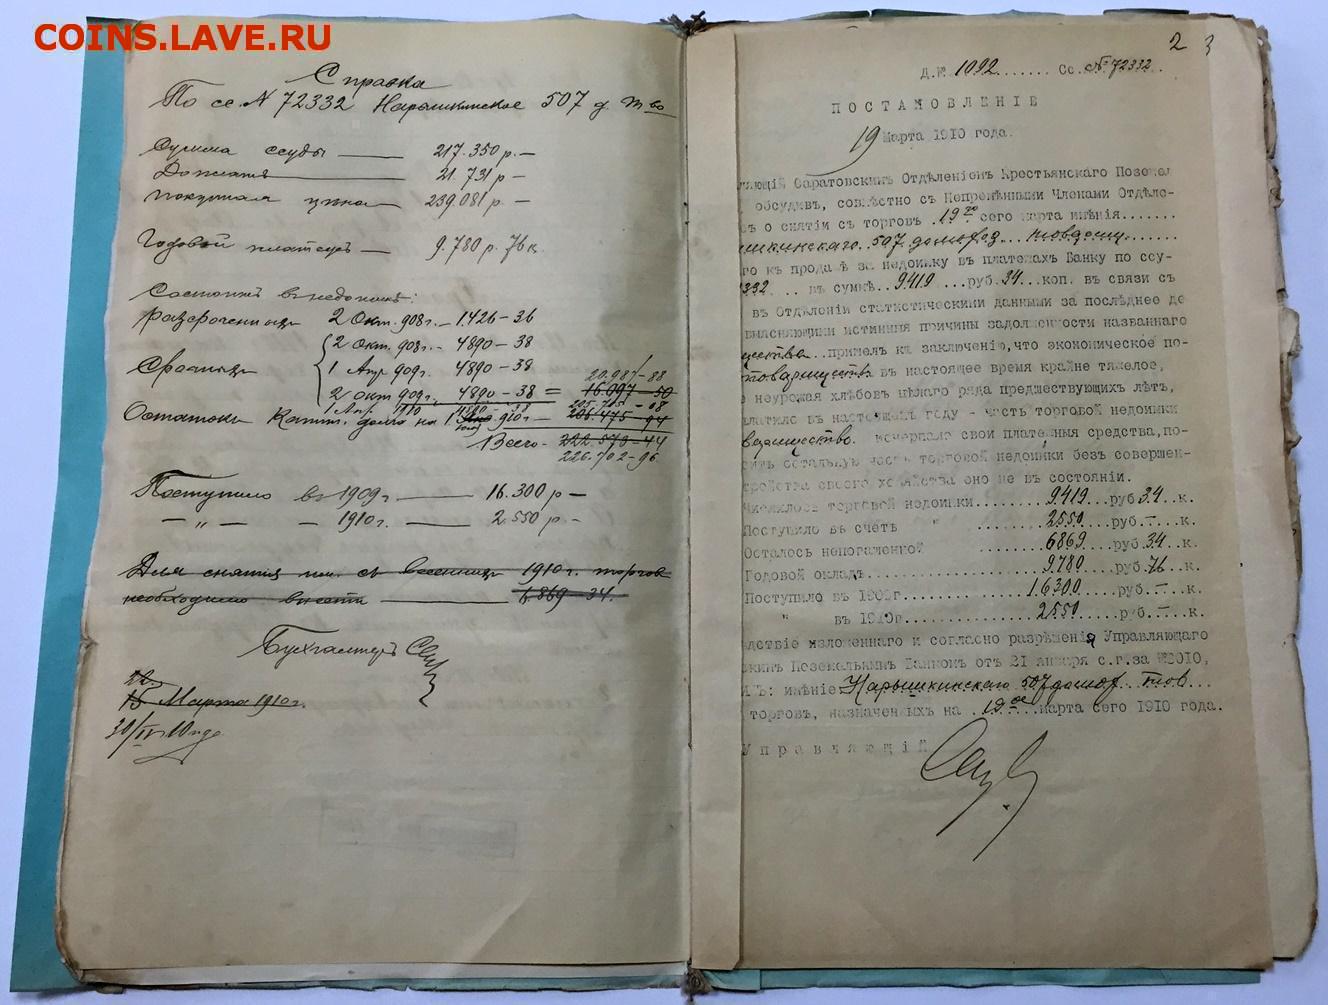 COINS.LAVE.RU
Справка
По сс. N 72332 Нарышкинское 507 д. т во
Сумма ссуды — 217.350 р. —
Доплата — 21.731 р —
покупная цѣна 239.081 р. —
Годовой платежъ — 9.780 р. 76 к.
Состоитъ въ недоимкѣ:
разсроченныхъ 2 Окт. 908 г. — 1.426-36
2 Окт. 908 г. - 4890-38
Срочныхъ 1 Апр 909 г. 4890-38 20.987-88
2 Окт 909 г. 4890-38 = 16.097-50
1 Апр. 1910 4890 38
Остатокъ Капит. долга на 1 910 г. — 206.475-94
Всего - 222.573-44
226.702-96
Поступило въ 1909 г — 16.300 р —
— „ — — 1910 г. — 2.550 р —
Для снятія им. съ весеннихъ 1910 г. торговъ
необходимо внести — 6.869 34.
Бухгалтеръ
15 Марта 1910 г.
30/IV 10 года
2 3
Д.№ 1092....... Сс. № 72332..
ПОСТАНОВЛЕНІЕ
19 Марта 1910 года.
ляющій Саратовскимъ Отдѣленіемъ Крестьянскаго Позема
обсудивъ, совмѣстно съ Непремѣнными Членами Отдѣле-
ъ о снятіи съ торговъ .19го сего марта имѣнія.......
шкинскаго 507 домохоз... товарищ......
го къ продажѣ за недоимку въ платежахъ Банку по ссу-
332 ... въ суммѣ..9419...руб.34.коп. въ связи съ
въ Отдѣленіи статистическими данными за послѣднее де
выясняющими истинныя причины задолженности названнаго
щества..пришелъ къ заключенію, что экономическое по-
товарищества въ настоящее время крайне тяжелое,
е неурожая хлѣбовъ цѣлаго ряда предшествующихъ лѣтъ,
латило въ настоящемъ году - часть торговой недоимки
варищество. исчерпало свои платежныя средства, по-
сить остальную часть торговой недоимки безъ совершен-
тройства своего хозяйства оно не въ состояніи.
Числилось торговой недоимки.....9419...руб 34.к.
Поступило въ счетъ " ......2550...руб.—.к.
Осталось непогашенной .......6869...руб.34..к.
Годовой окладъ..............9780...руб.76.к.
Поступило въ 1909г..........16300...руб.—.к.
" въ 1910г............2550...руб.—.к.
ѣдствіе изложеннаго и согласно разрѣшенія Управляющаго
скимъ Поземельнымъ Банкомъ отъ 21 января с.г. за №2010,
ИЛЪ: имѣніе Нарышкинскаго 507 домох.. тов
торговъ, назначенныхъ на .19ое...марта сего 1910 года.
Управляющій